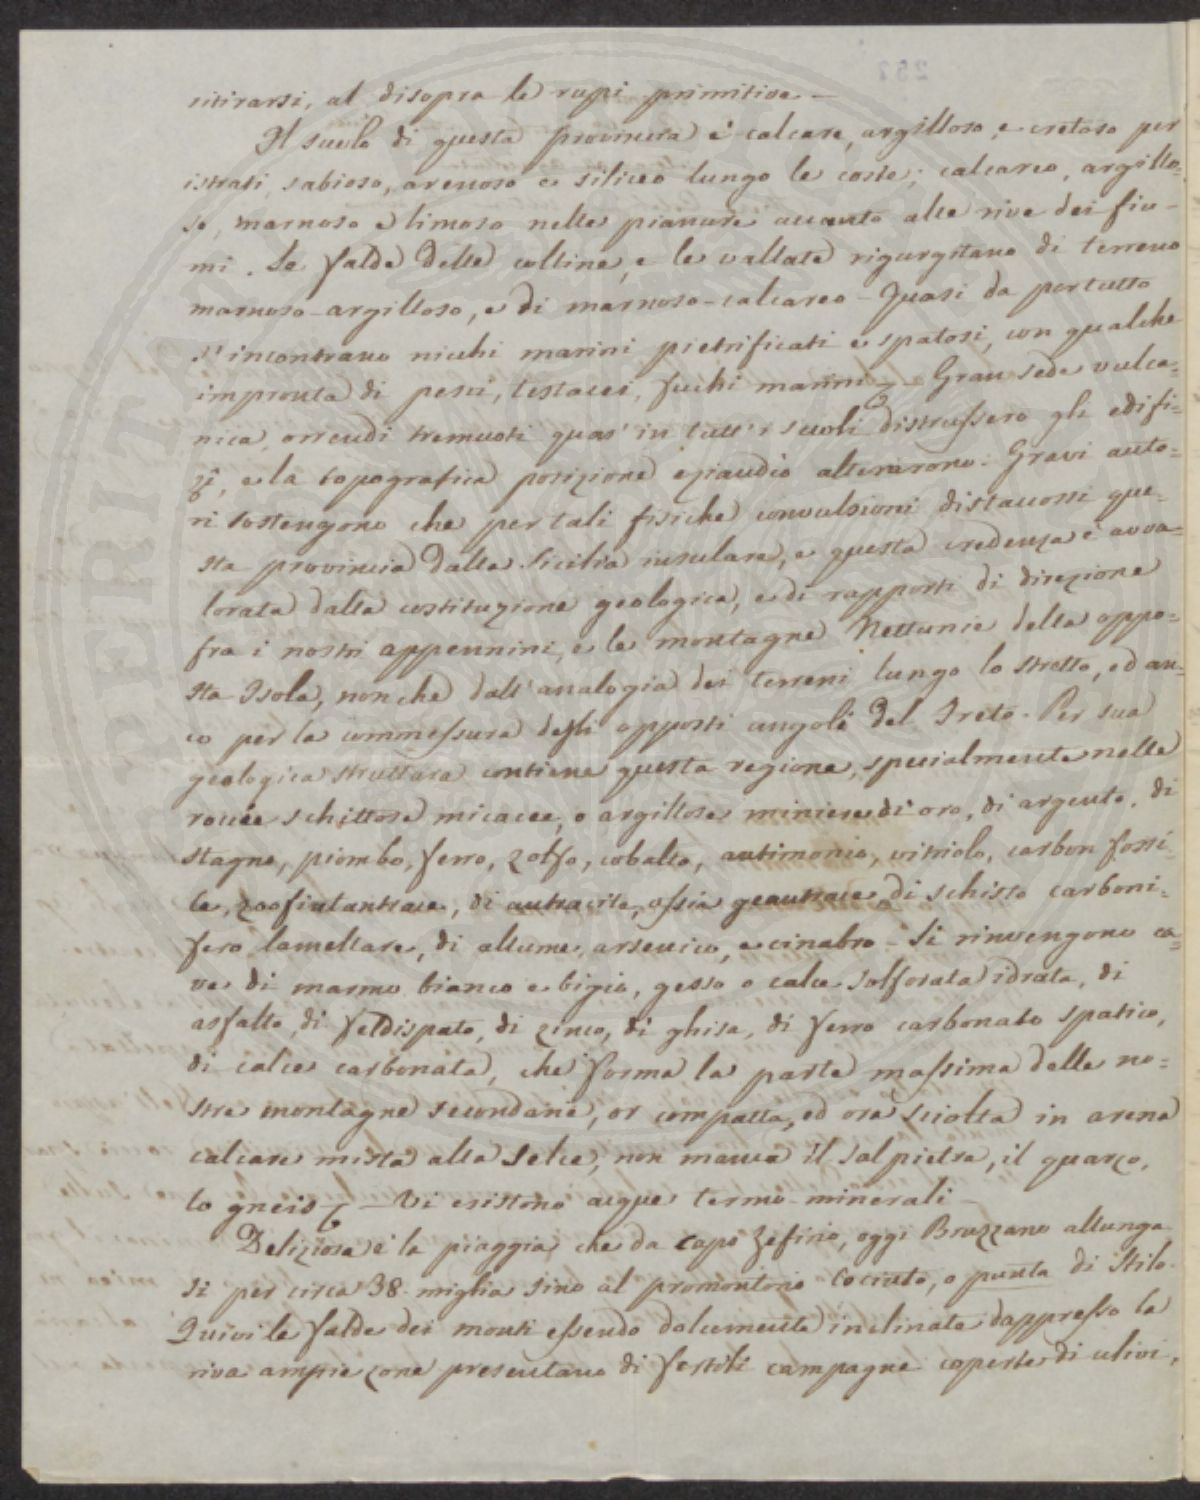 ritirarsi, al disopra le rupi primitive —
Il suolo di questa provincia è calcare, argilloso, e cretoso per
istrati, sabioso, arenoso e siliceo lungo le coste; calcareo, argillo=
so, marnoso e limoso nelle pianure accanto alle rive dei fiu-
mi. Le falde delle colline, e le vallate rigurgitano di terreno
marnoso-argilloso, e di marnoso-calcareo — Quasi da per tutto
s'incontrano nicchi marini pietrificati e spatosi, con qualche
impronta di pesci, testacei, fuchi marini — Gran sede vulca=
nica, orrendi tremuoti quas' in tutt'i secoli distrussero gli edifi=
zî, e la topografica posizione eziandio alterarono. Gravi auto=
ri sostengono che per tali fisiche convulsioni distaccossi que-
sta provincia dalla Sicilia insulare, e questa credenza è avva=
lorata dalla costituzione geologica, e di rapporti di direzione
fra i nostri appennini, e le montagne Nettunie della oppo=
sta Isola, nonchè dall'analogia dei terreni lungo lo stretto, ed an=
co per la commessura degli opposti angoli del Freto. Per sua
geologica struttura contiene questa regione, specialmente nelle
roccie schittose micacee, o argillose miniere di oro, di argento, di
stagno, piombo, ferro, zolfo, cobalto, antimonio, vitriolo, carbon fossi
le, zoofintantrace, di antracite, ossia geantrace, di schisto carboni=
fero lamellare, di allume, arsenico, e cinabro — Si rinvengono ca=
ve di marmo bianco e bigio, gesso o calce solforata idrata, di
asfalto, di feldispato, di zinco, di ghisa, di ferro carbonato spatico,
di calce carbonata, che forma la parte massima delle no=
stre montagne secondarie, or compatta, ed ora sciolta in arena
calcare mista alla selce, non manca il salpietra, il quarzo,
lo gneis — Vi esistono acque termo-minerali —
Deliziosa è la piaggia che da capo Zefirio, oggi Bruzzano allunga
si per circa 38 miglia sino al promontorio Cocinto, o punta di Stilo.
Quivi le falde dei monti essendo dolcemente inclinate dappresso la
riva ampie zone presentano di fertili campagne coperte di ulivi,